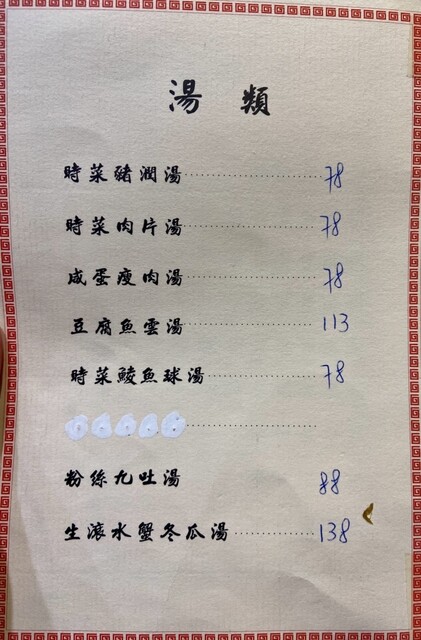 湯 類
時菜豬潤湯 78
時菜肉片湯 78
咸蛋瘦肉湯 78
豆腐魚雲湯 113
時菜鯪魚球湯 78
粉絲九吐湯 88
生滾水蟹冬瓜湯 138